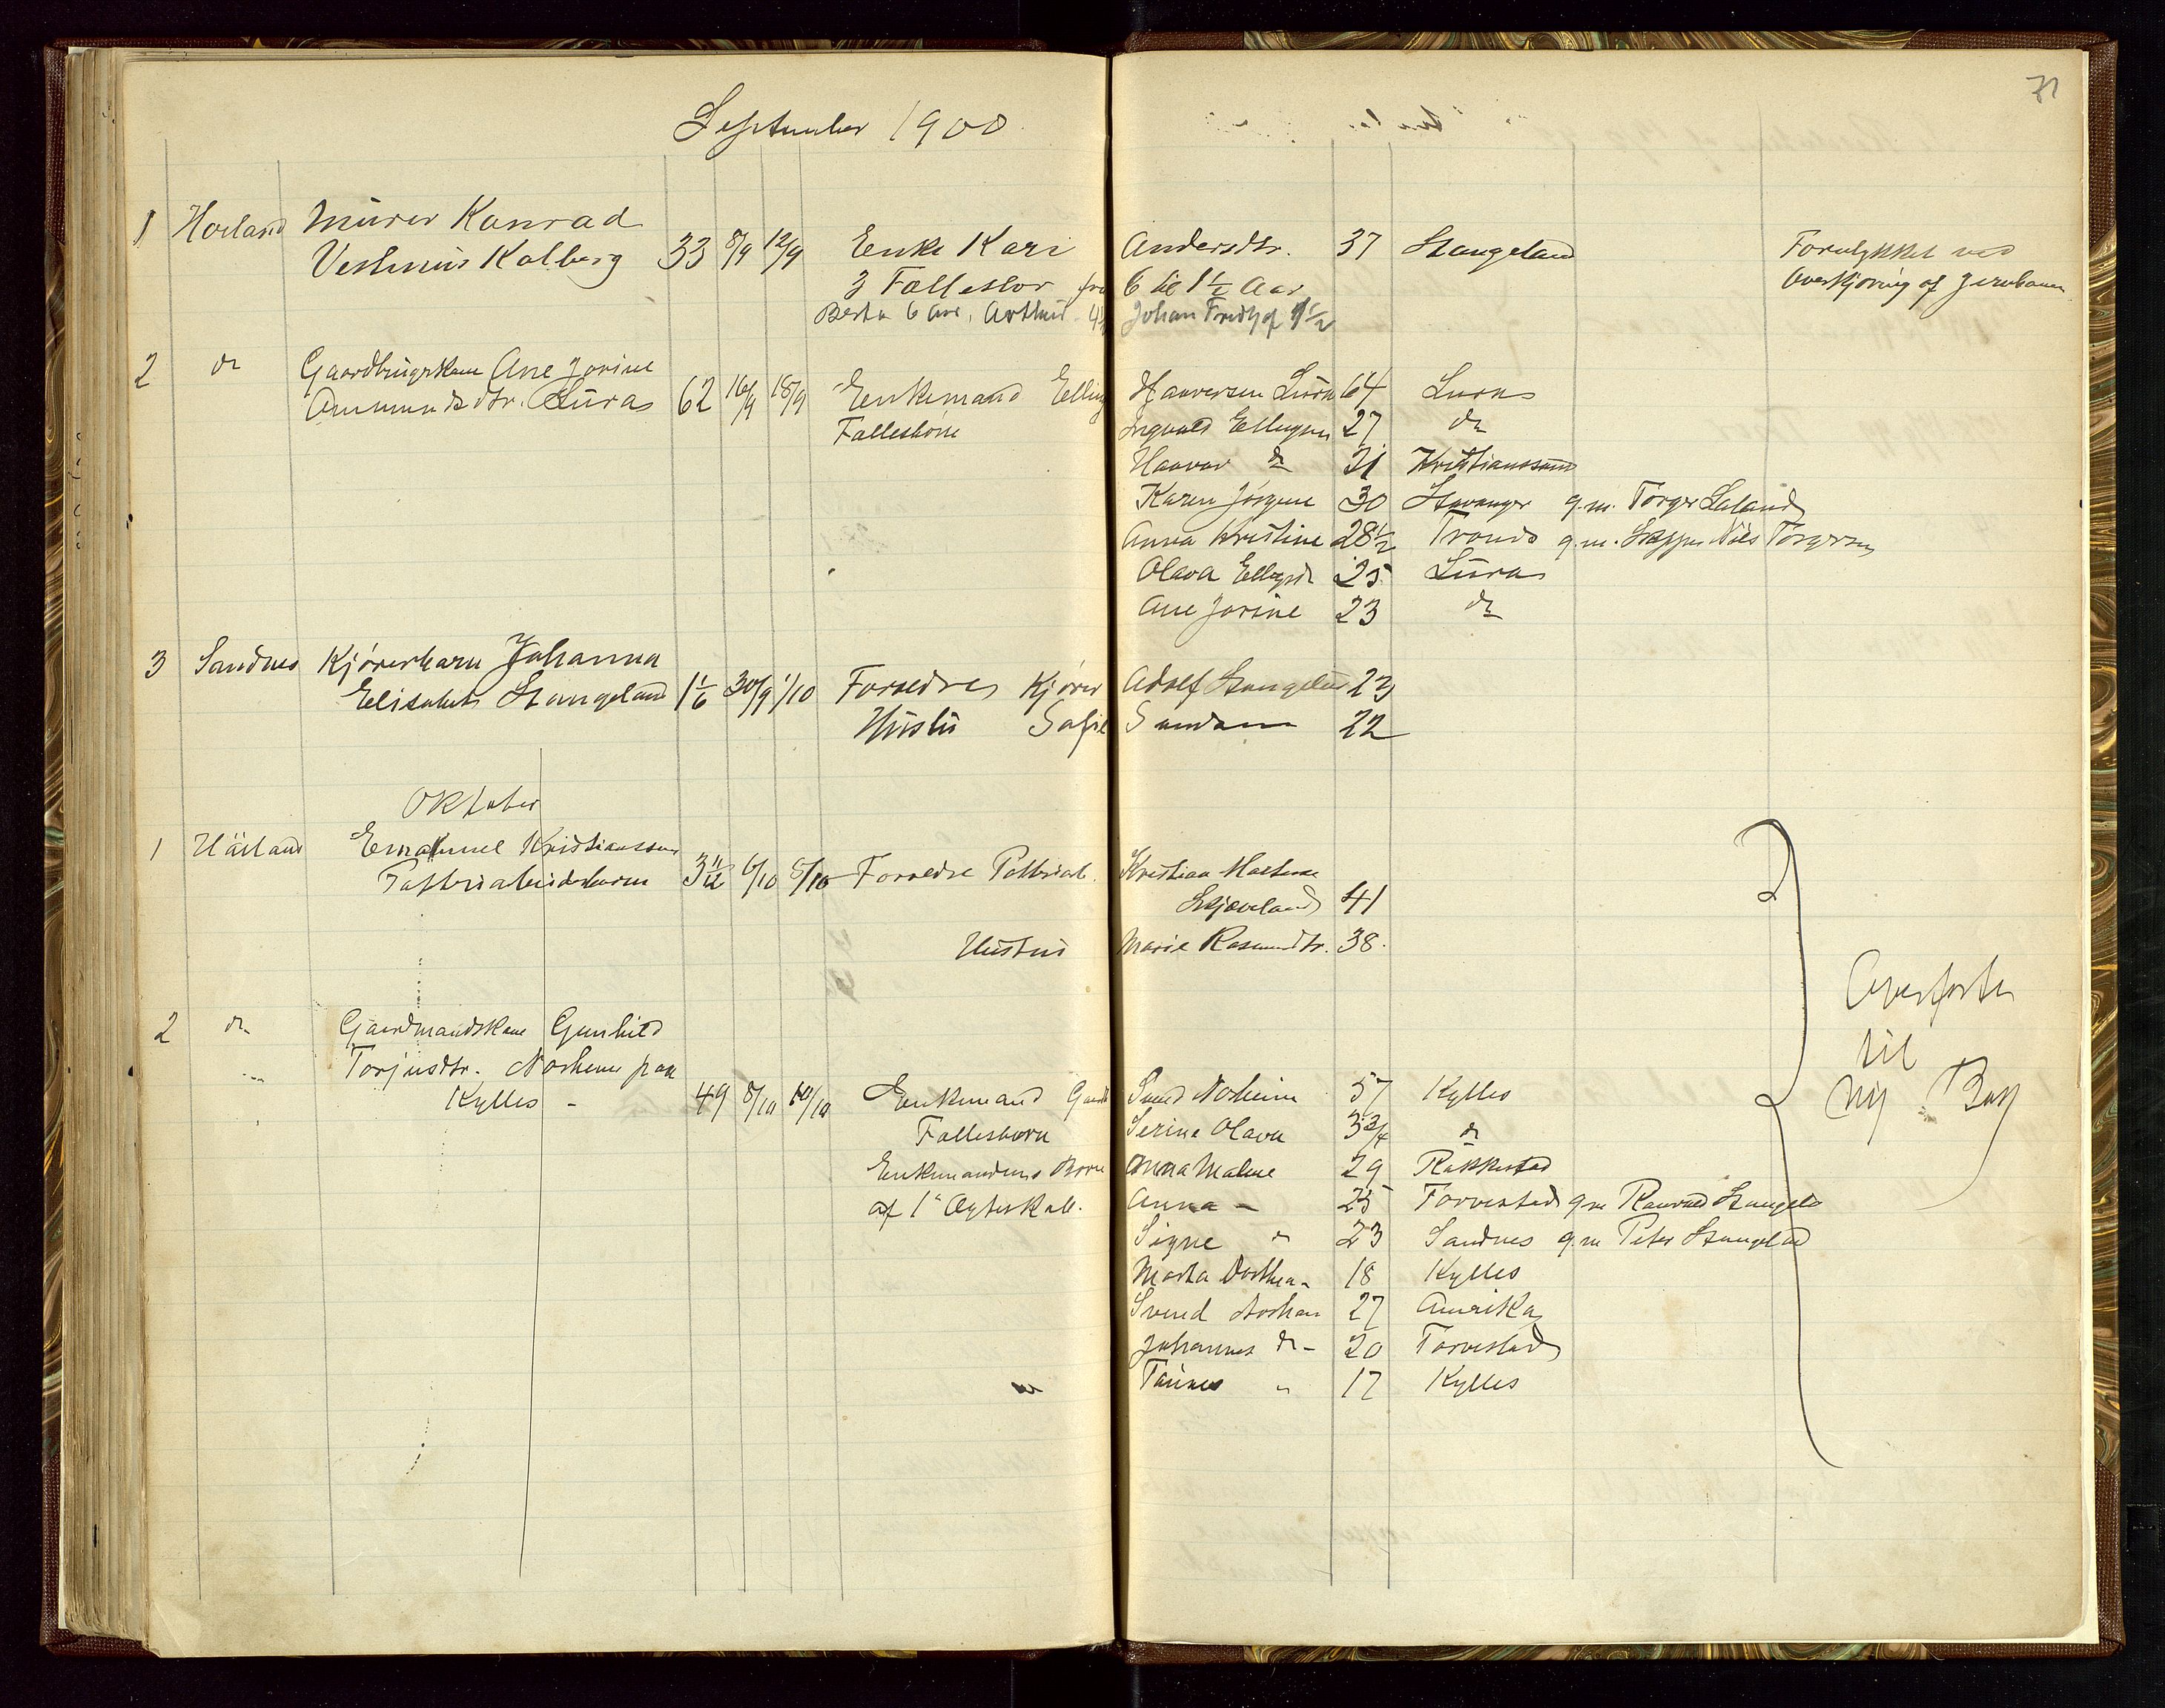 71
September 1900
1 Hoiland Murer Konrad
Vestmin Kalberg 33 8/9 12/9 Enke Kari Andersdtr. 37 Stangeland Forulykket ved
3 Fællesbør fra 6 til 1 1/2 Aar Overkjöring af Jernbanen
Berta 6 Aar, Arthur 4 1/2 Johan Fridhjof 1 1/2
2 do Gaardbrugerkone Ane Jorine
Ammundsdtr. Lura 62 16/9 18/9 Enkemand Elling Haaversen Lura 64 Lura
Fallesbörn Ingvald Ellingsen 27 do
Haavar do 21 Kristianssund
Karen Jörgine 30 Stavanger g.m. Torger Laland
Anna Kristine 28 1/2 Trones g.m. Skipper Nils Torgersen
Olava Ellingsd 25 Lura
Ane Jorine 23 do
3 Sandnes Kjörerbarn Johanna
Elisabeth Stangeland 1 1/6 30/9 1/10 Foreldre Kjörer Adolf Stangeland 23
Hustru Sofie 22
Oktober
1 Häiland Emanuel Kristianssen
3 11/12 6/10 8/10 Foreldre Kristian
Skjæveland 41
Hustru Marie Rasmusdtr. 38.
2 do Gaardmandskone Gunhild
Torjusdtr. Norheim paa
Kylles - 49 8/10 10/10 Enkemand Gaardb Svend Norheim 57 Kylles
Fallesbörn Serine Olava 3 3/4 do
Enkemandens Börn Anna Malene 29 Rakkestad
af 1e Ægteskab. Anna - 25 Torvestad g.m Stangeld
Signe " 23 Sandnes g.m Peter Stangeland
Marta Dorthea - 18 Kylles
Svend Norheim 27 Amerika
Johannes do - 20 Torvestad
" 17 Kylles
Overförte
til
Ny Bog